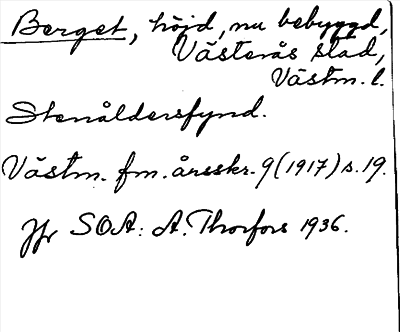 Berget, höjd, nu bebyggd,
Västerås stad,
Västm. l.
Stenåldersfynd.
Västm. fm. årsskr. 9 (1917) s. 19.
Jfr SOA: A. Thorfors 1936.